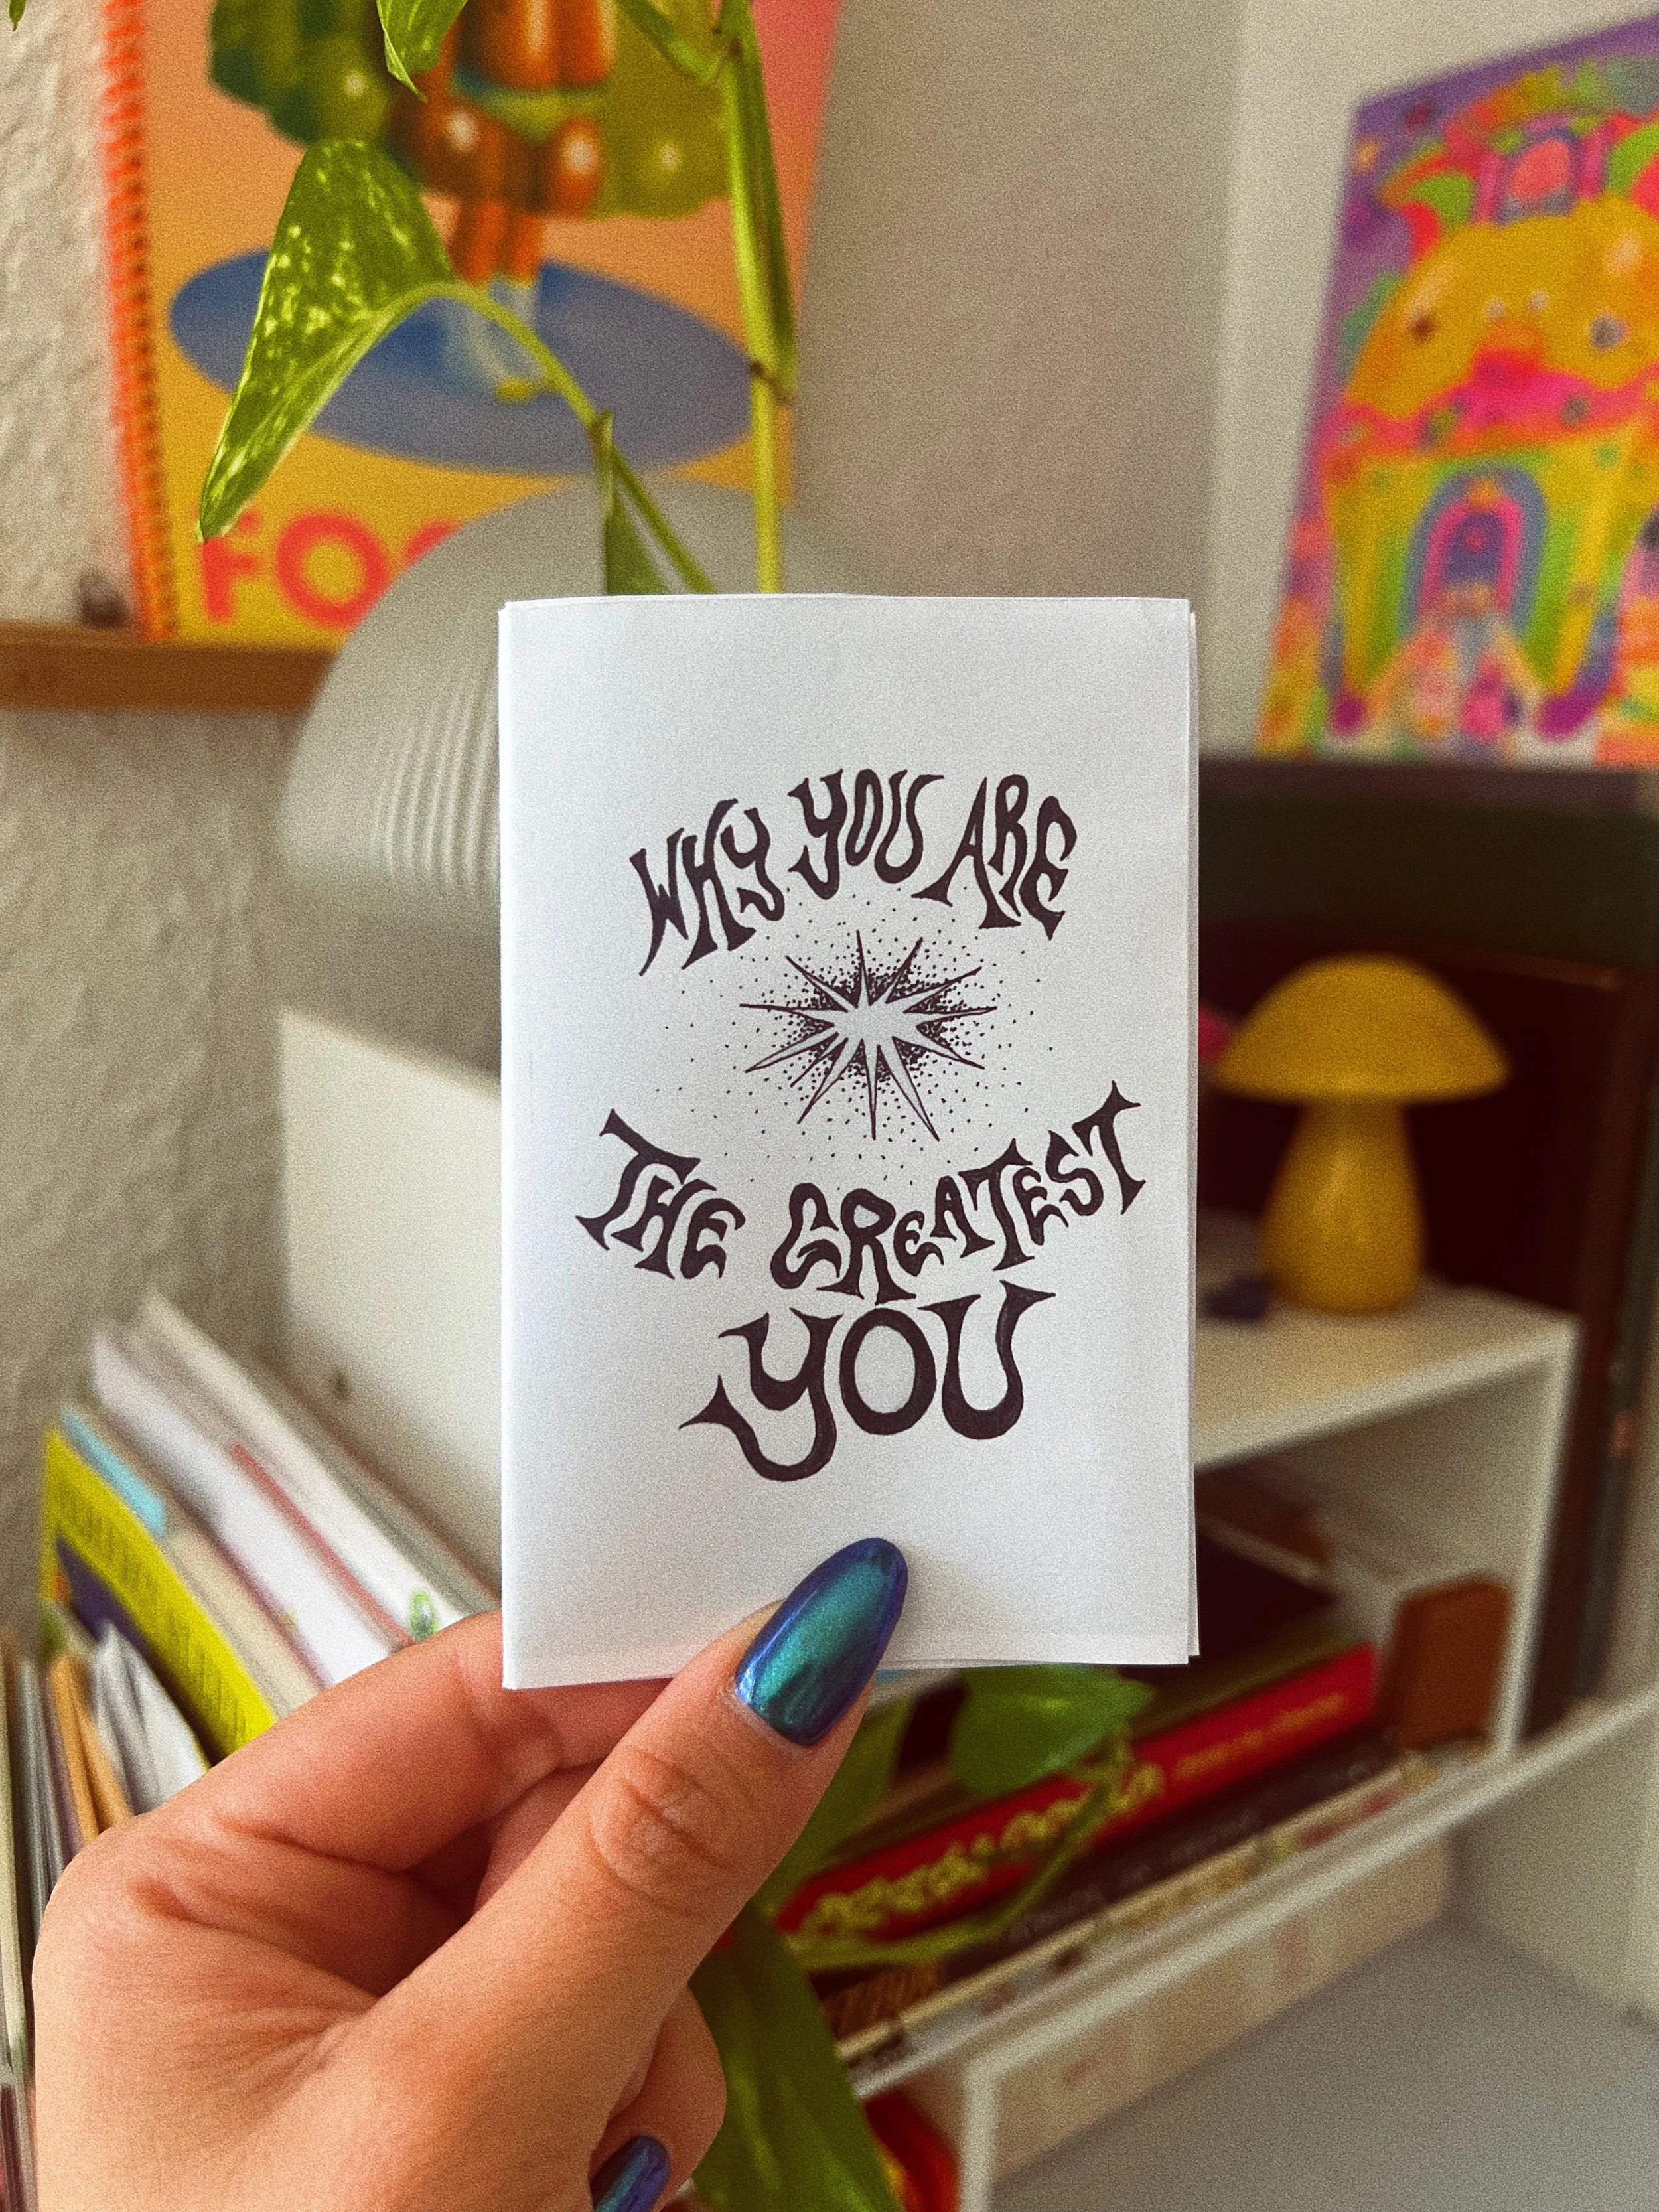 WHY YOU ARE
THE GREATEST
YOU